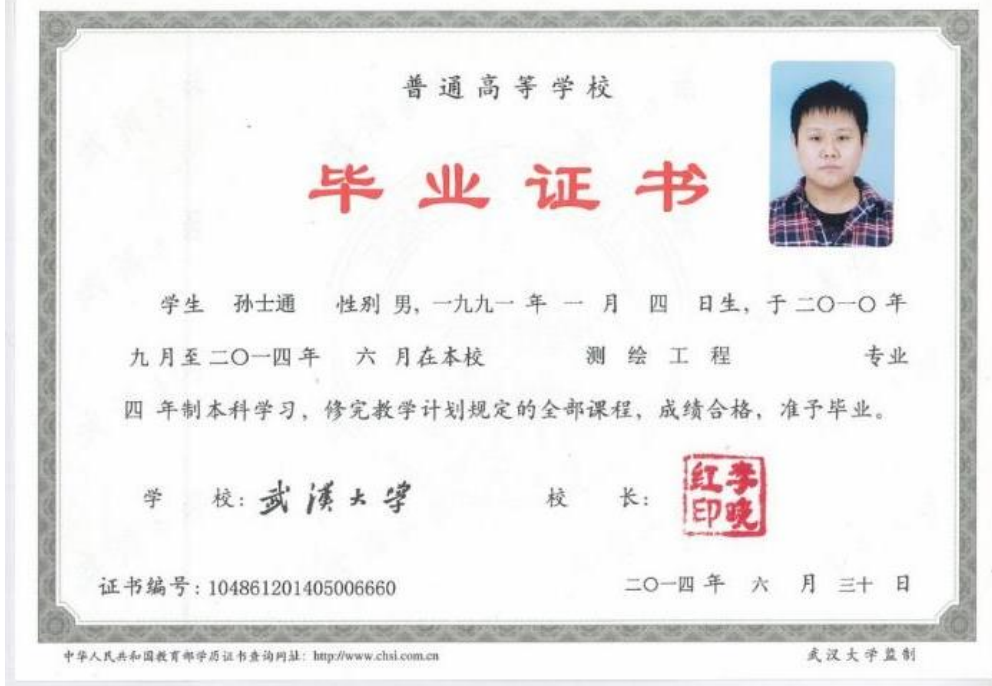 普通高等学校
毕业证书
学生 孙士通 性别 男，一九九一 年 一 月 四 日生，于 二〇一〇 年
九 月至 二〇一四 年 六 月在本校 测绘工程 专业
四 年制本科学习，修完教学计划规定的全部课程，成绩合格，准予毕业。
学 校：武漢大学 校 长：
李晓红印
证书编号：104861201405006660 二〇一四 年 六 月 三十 日
中华人民共和国教育部学历证书查询网址：http://www.chsi.com.cn 武汉大学监制